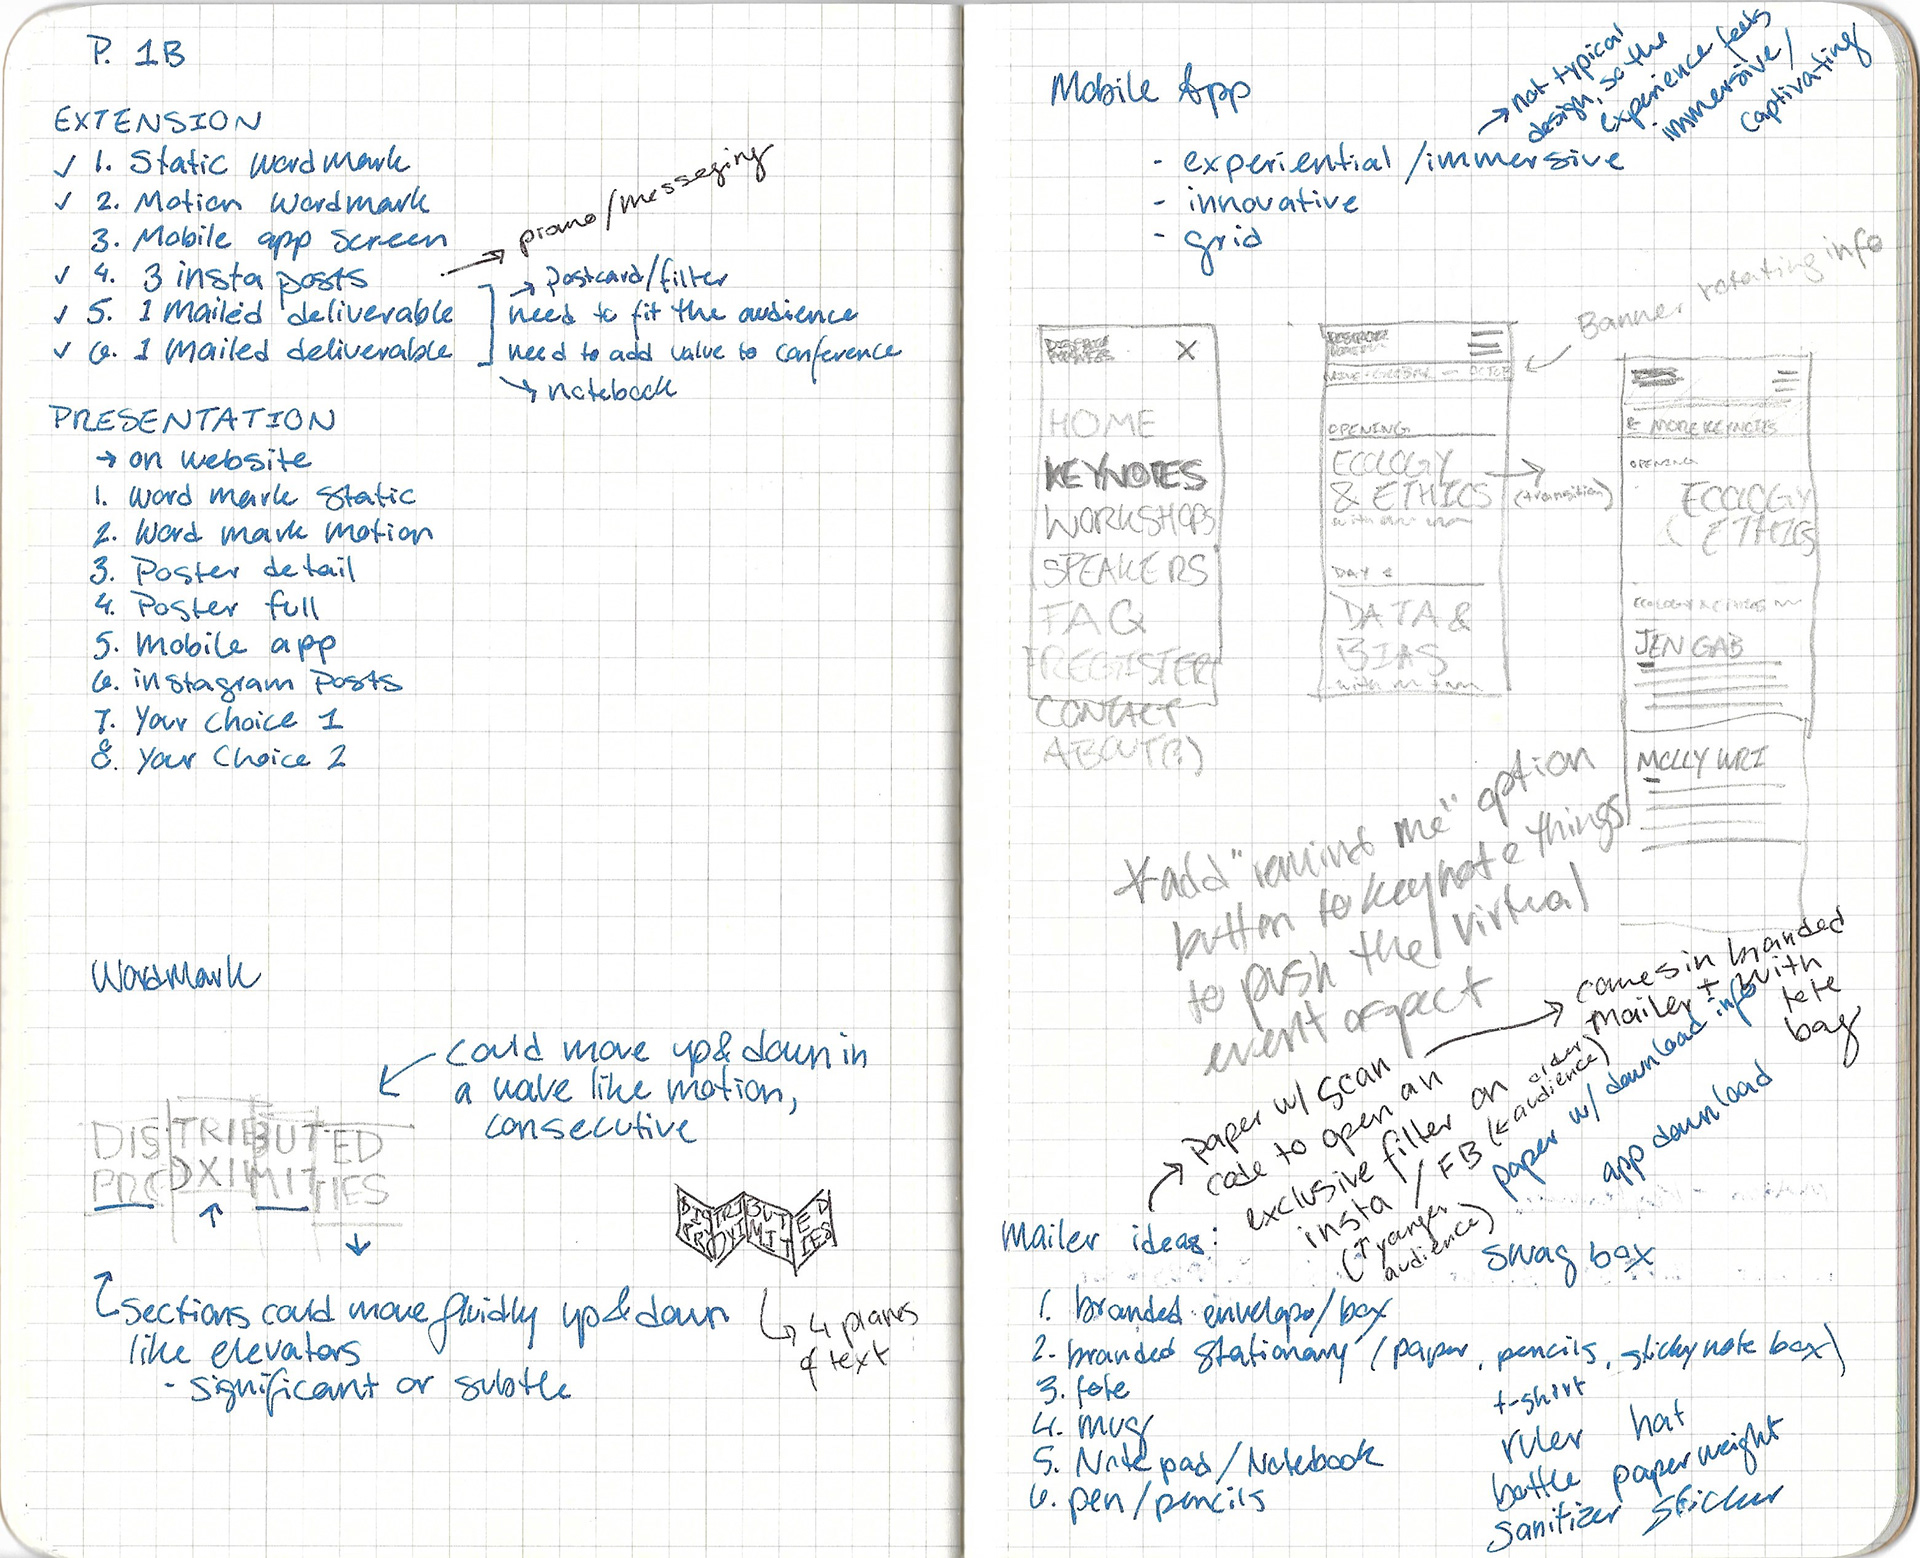 P. 1B
EXTENSION
✓ 1. Static wordmark
✓ 2. Motion wordmark
3. Mobile app screen
✓ 4. 3 insta posts
→ promo/messeging
✓ 5. 1 Mailed deliverable
✓ 6. 1 Mailed deliverable
→ Postcard/filter
need to fit the audience
need to add value to conference
→ notebook
PRESENTATION
→ on website
1. Word mark static
2. Word mark motion
3. Poster detail
4. Poster full
5. Mobile app
6. instagram posts
7. Your choice 1
8. Your Choice 2
WordMark
could move up & down in
a wave like motion,
consecutive
DISTRIBUTED
PROXIMITIES
sections could move fluidly up & down
like elevators
- significant or subtle
DISTRIBUTED
PROXIMITIES
4 planes
of text
Mobile App
→ not typical
design, so the
experience feels
immersive/
captivating
- experiential/immersive
- innovative
- grid
Banner rotating info
X
HOME
KEYNOTES
WORKSHOPS
SPEAKERS
FAQ
REGISTER
CONTACT
ABOUT(?)
OPENING
ECOLOGY
& ETHICS
with
→ (transition)
DAY 2
DATA &
BIAS
with
← MORE KEYNOTES
OPENING
ECOLOGY
ETHICS
JEN GAB
MOLLY WRI
*add "remind me" option
button to keynote things
to push the virtual
event aspect
→ paper w/ scan
code to open an
exclusive filter on
insta / FB (↖ older audience)
(↑ younger
audience)
→ comes in branded
mailer + with
tote
bag
paper w/ download info
app download
Mailer ideas:
swag box
1. branded envelope/box
2. branded stationary (paper, pencils, sticky note box)
3. tote
4. mug
5. Note pad/Notebook
6. pen/pencils
t-shirt
ruler hat
bottle paperweight
sanitizer sticker